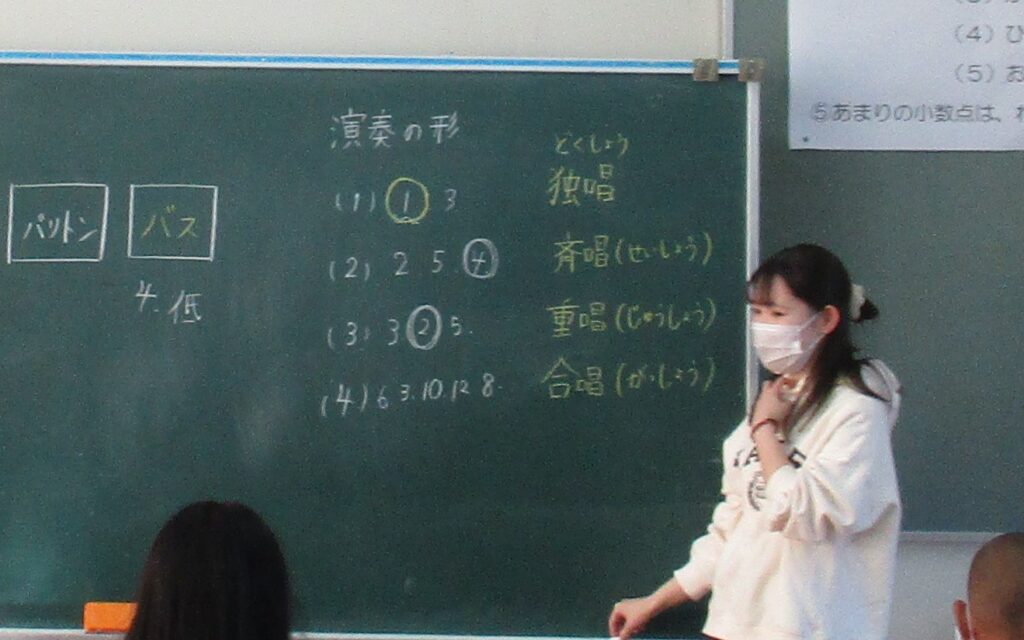 バリトン
バス
4. 低
演奏の形
(1) ① 3
(2) 2 5 ④
(3) 3 ② 5.
(4) 6 3. 10. 12 8.
どくしょう
独唱
斉唱(せいしょう)
重唱(じゅうしょう)
合唱(がっしょう)
(4) ひ
(5) お
⑥あまりの小数点は、